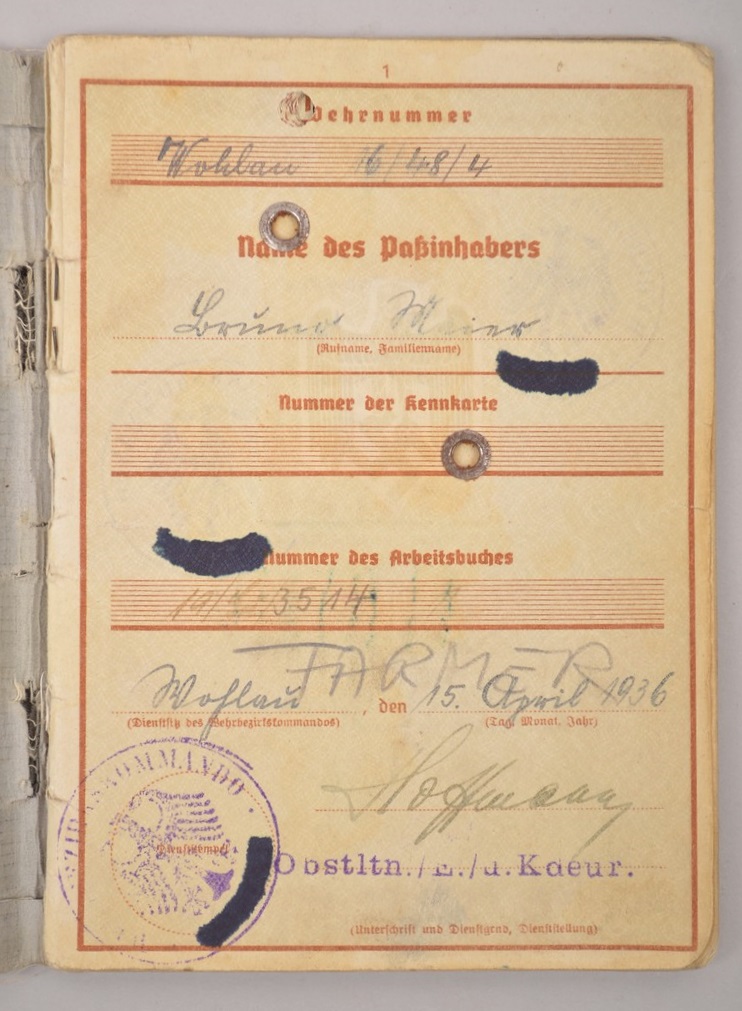 1
Wehrnummer
Wohlau 16/48/4
Name des Paßinhabers
Bruno Meier
(Rufname, Familienname)
Nummer der Kennkarte
Nummer des Arbeitsbuches
FARMER
Wohlau, den 15. April 1936
(Dienstsitz des Wehrbezirkskommandos) (Tag, Monat, Jahr)
Hoffmann
Dienststempel
Obstltn./E./u.Kdeur.
(Unterschrift und Dienstgrad, Dienststellung)